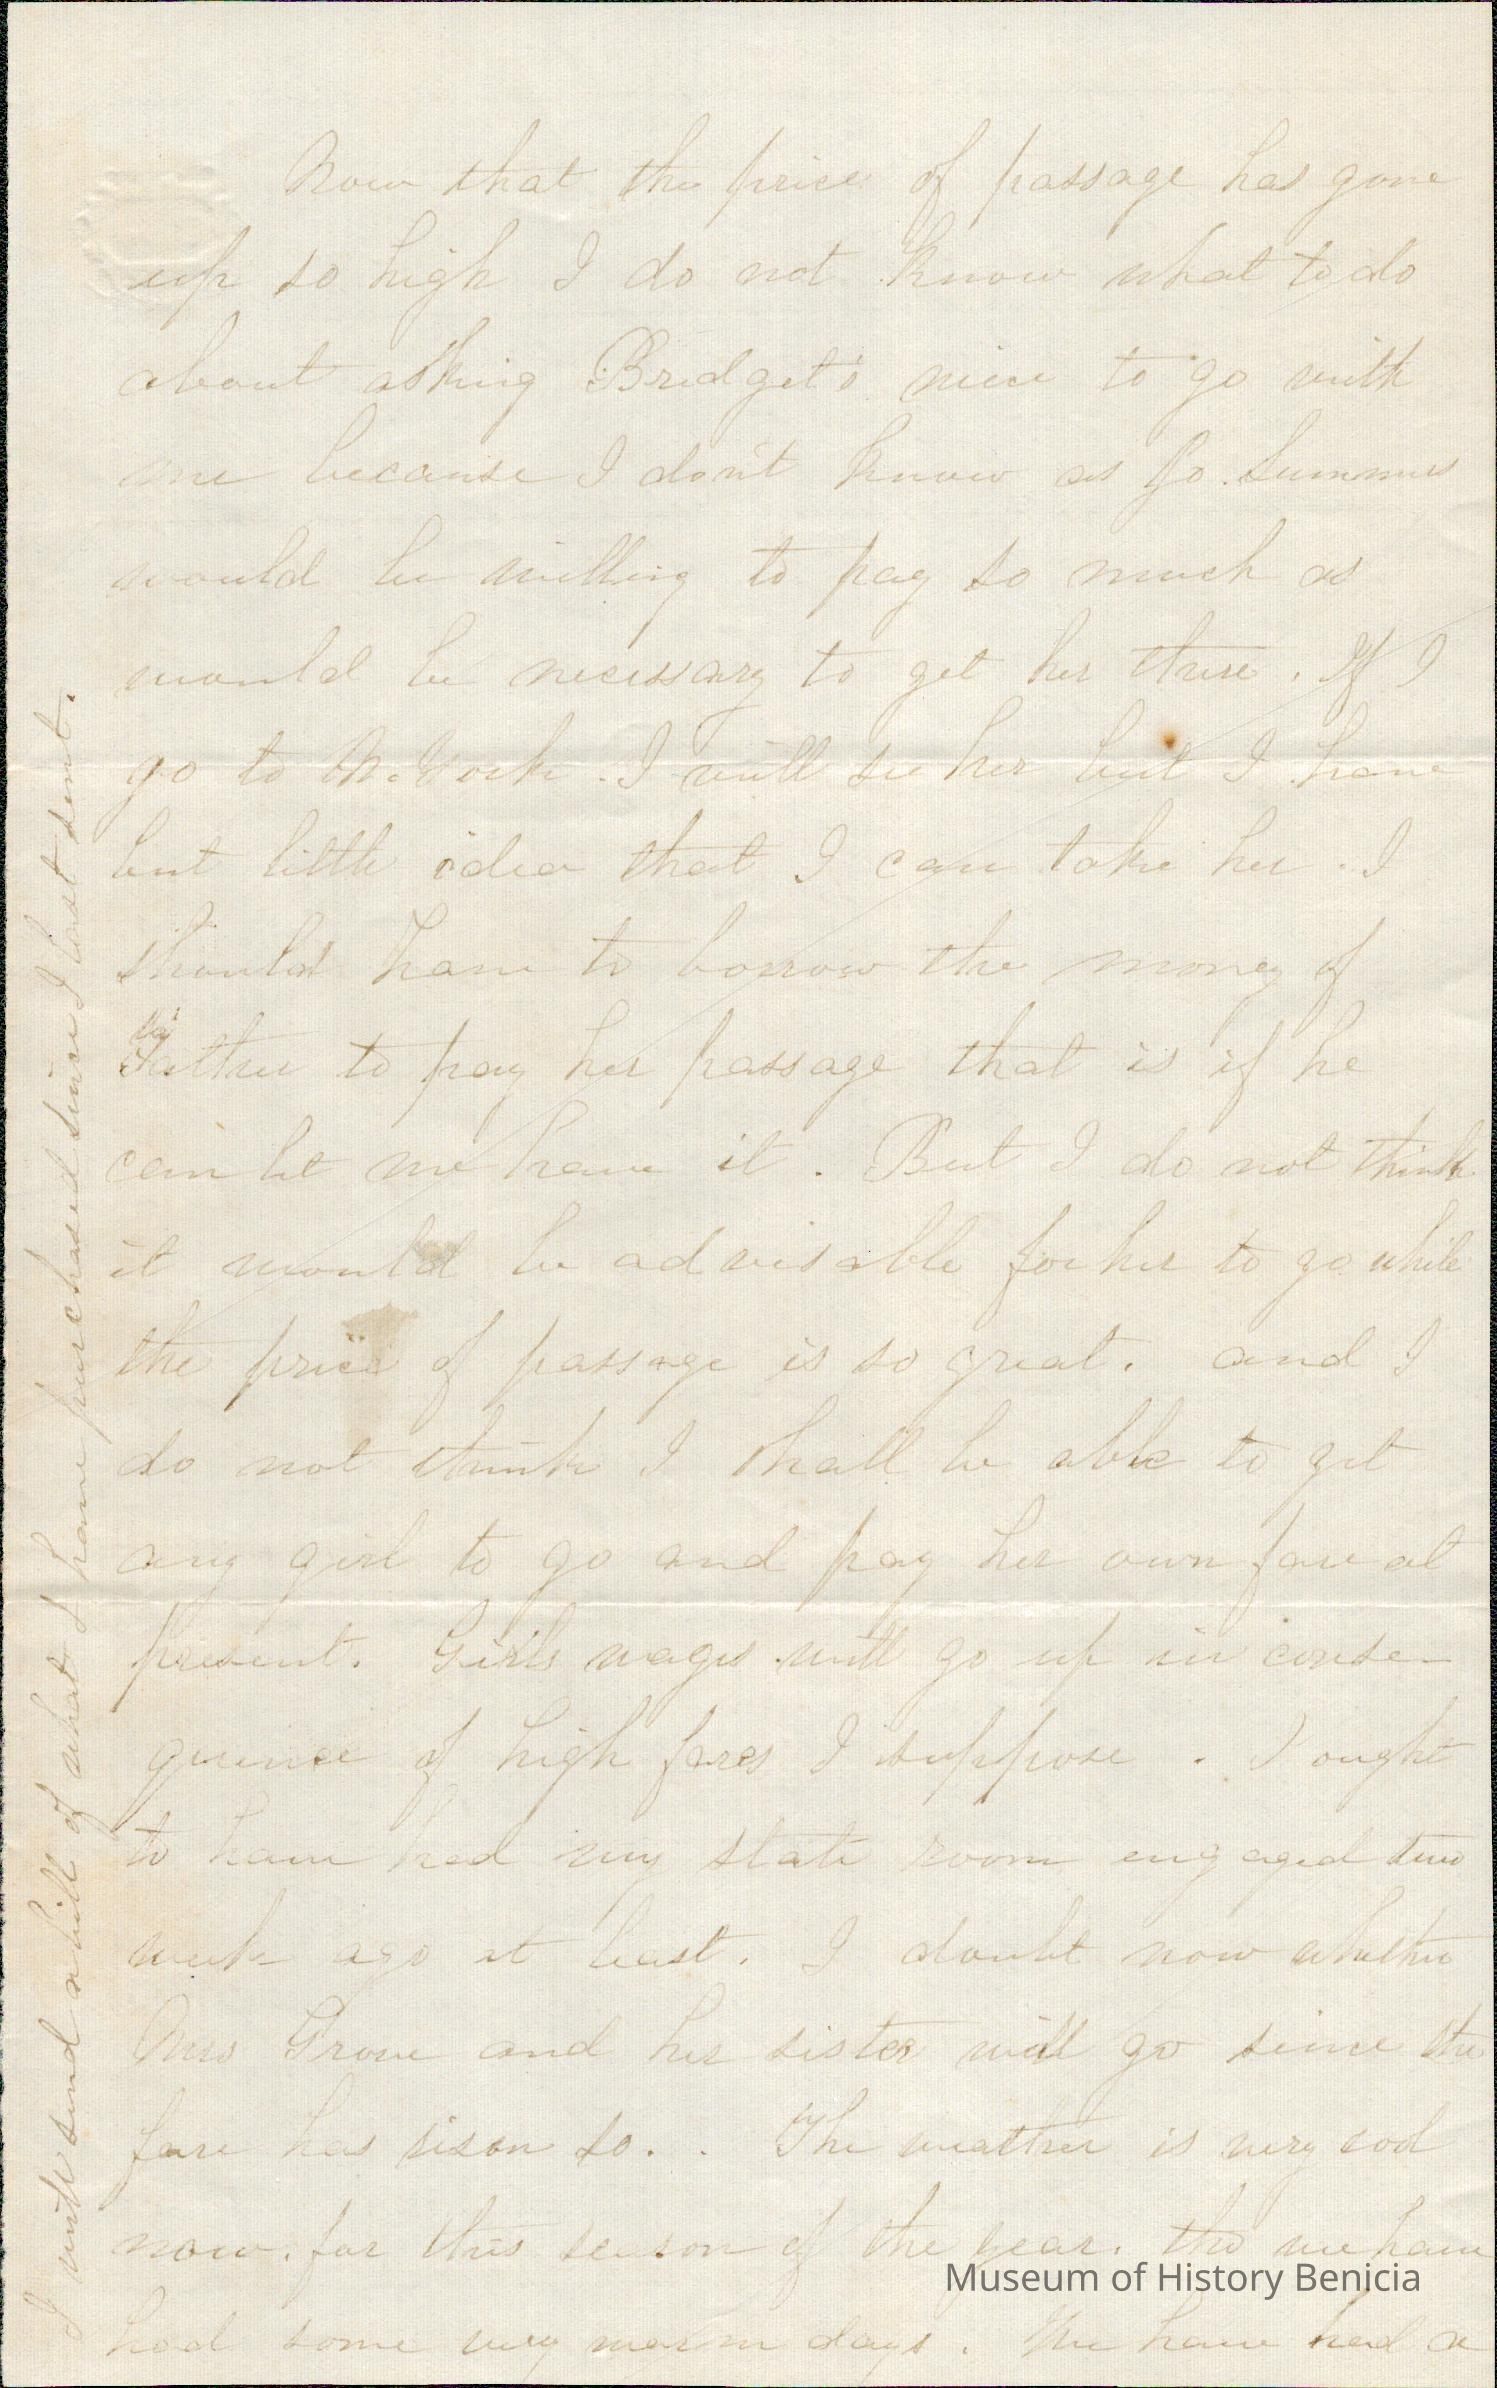 Now that the price of passage has gone
up so high I do not know what to do
about asking Bridget's niece to go with
me because I don't know as
would be willing to pay so much as
would be necessary to get her there. If I
go to N. York. I will see her but I have
but little idea that I can take her. I
should have to borrow the money of
Father to pay her passage that is if he
can let me have it. But I do not think
it would be advisable for her to go while
the price of passage is so great. and I
do not think I shall be able to get
any girl to go and pay her own fare at
present. Girls wages will go up in conse-
quence of high fares I suppose. I ought
to have had my state room engaged two
week ago at least. I doubt now whether
Mrs Grove and her sister will go since the
fare has rison so.. The weather is very cool
now. for this season of the year. tho we have
had some very warm days. We have had a
I will send a bill of what I have purchased since I last sent.
Museum of History Benicia